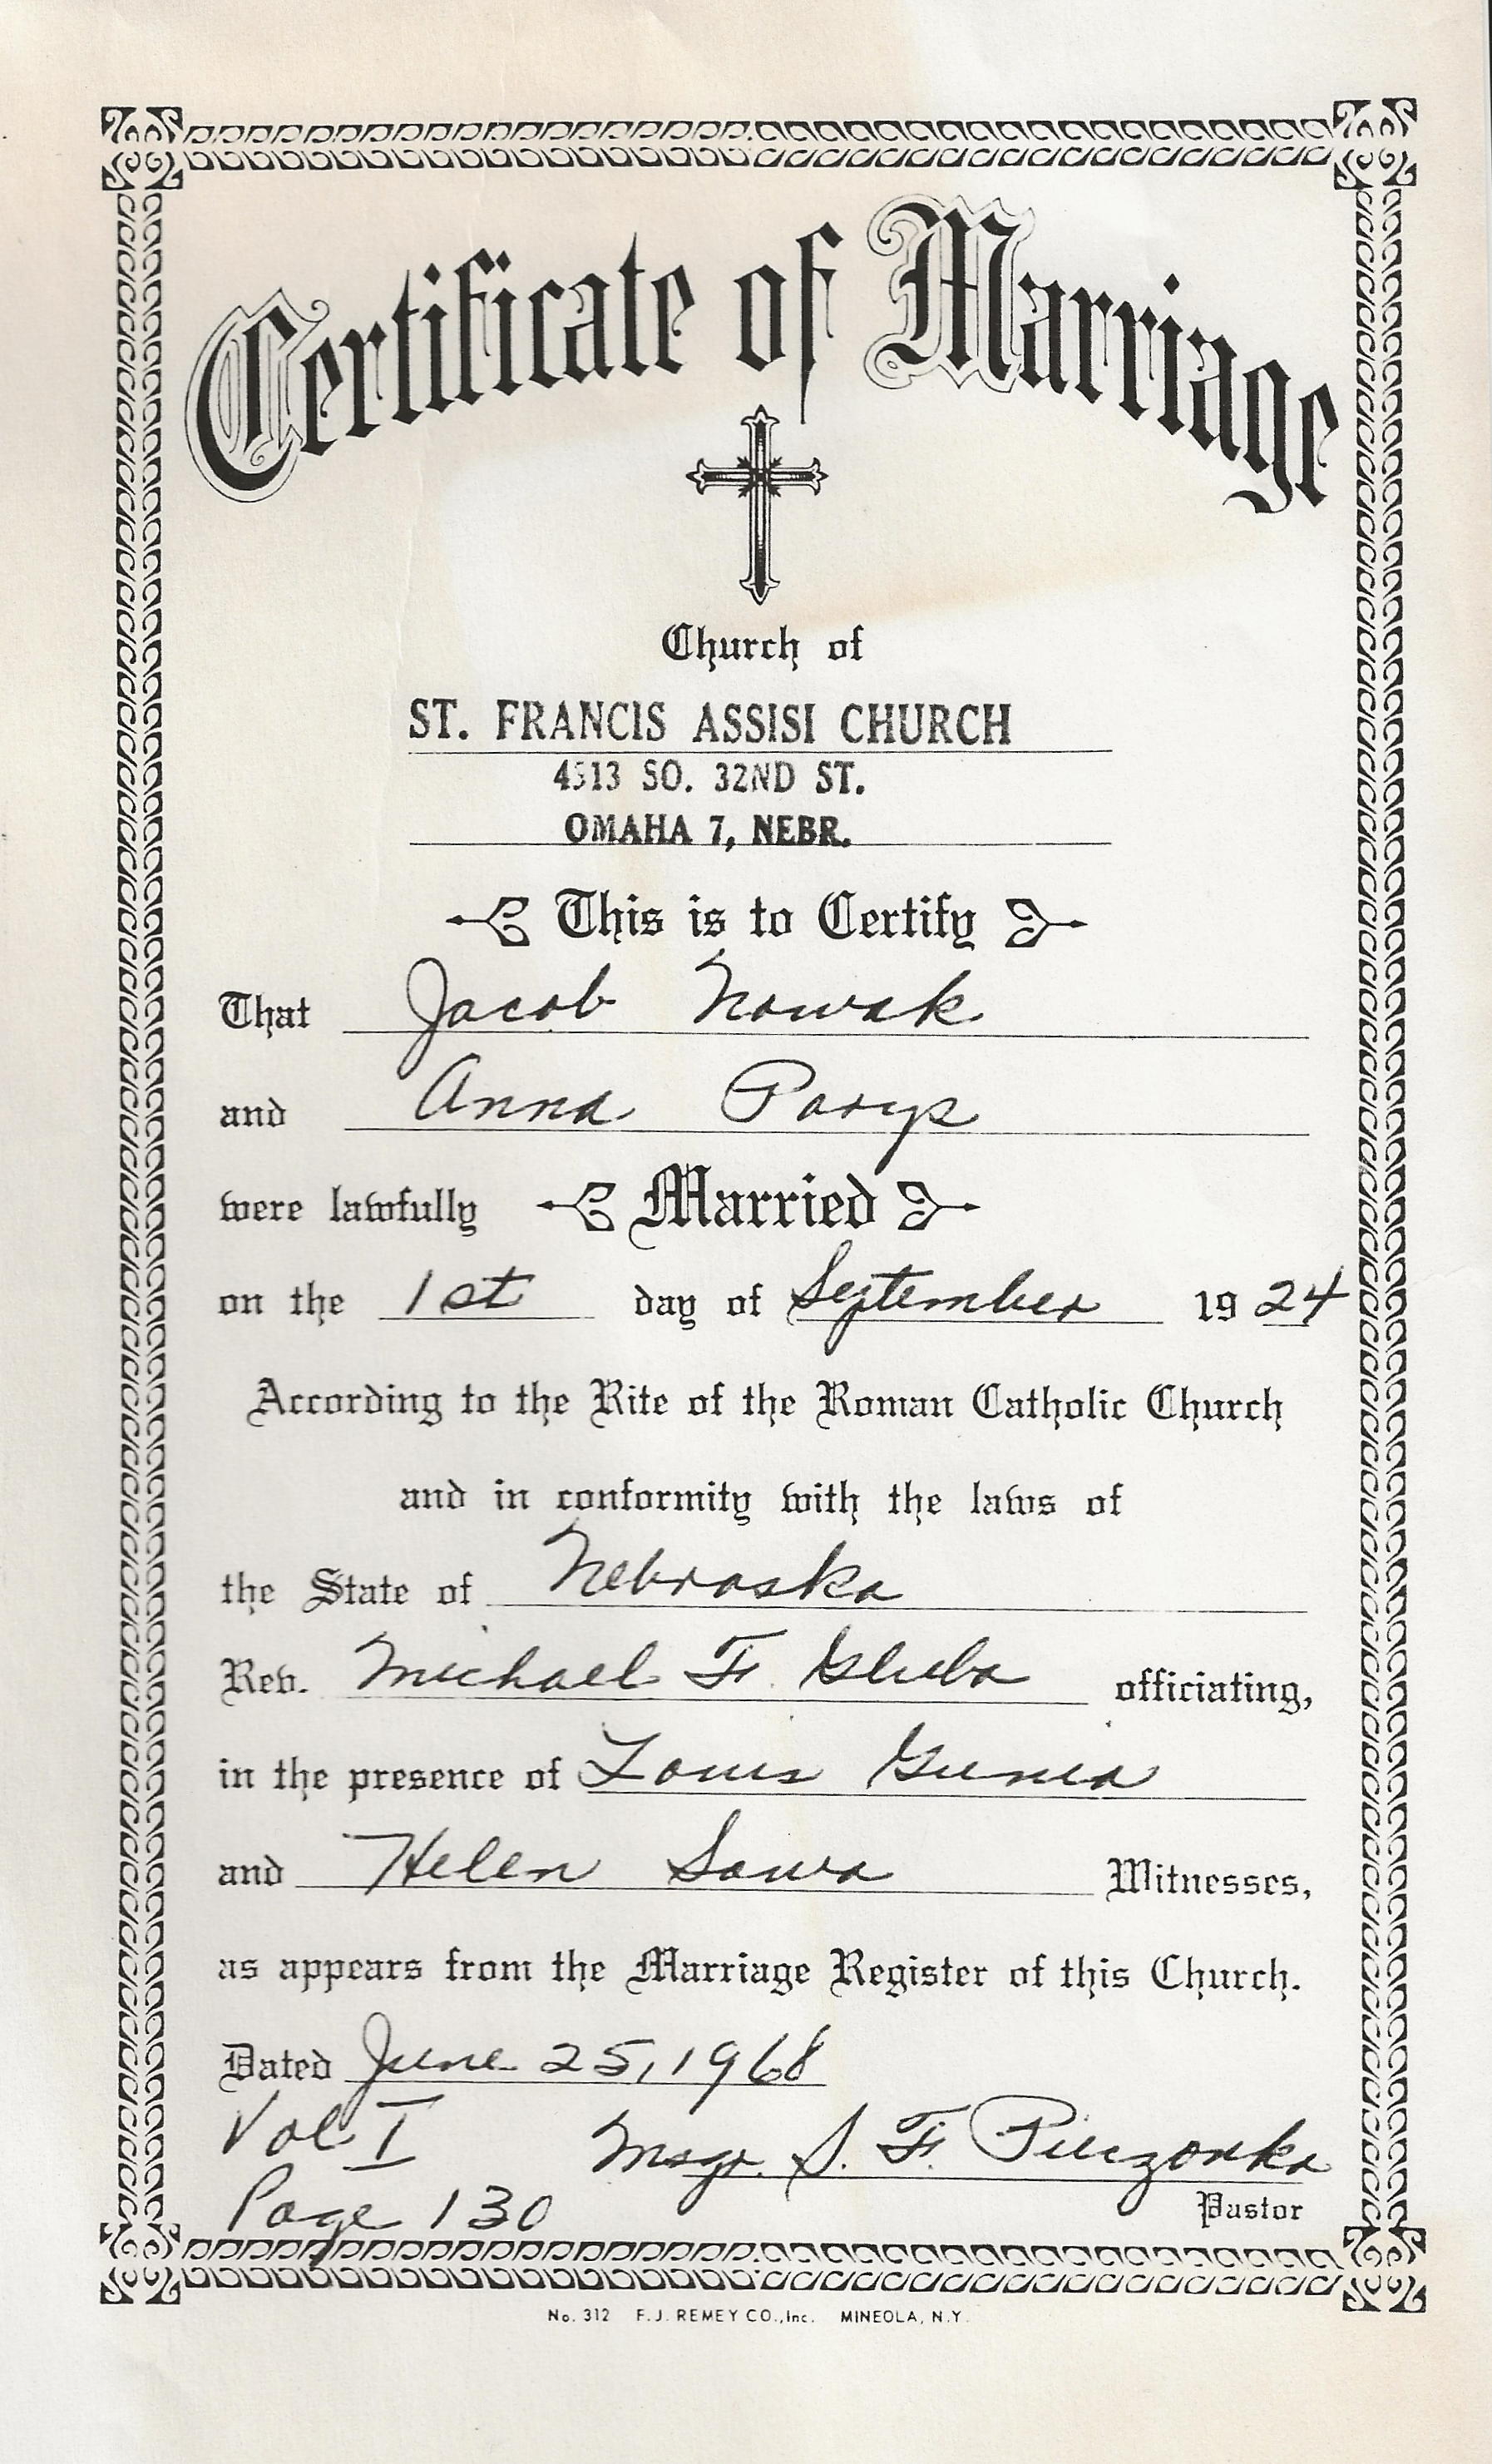 Certificate of Marriage
Church of
ST. FRANCIS ASSISI CHURCH
4513 SO. 32ND ST.
OMAHA 7, NEBR.
This is to Certify
That Jacob Nowak
and Anna Parys
were lawfully Married
on the 1st day of September 1924
According to the Rite of the Roman Catholic Church
and in conformity with the laws of
the State of Nebraska
Rev. Michael F. Gluba officiating,
in the presence of Louis Gunia
and Helen Sowa Witnesses,
as appears from the Marriage Register of this Church.
Dated June 25, 1968
Vol I Msgr. S. F.
Page 130 Pastor
No. 312 F.J. REMEY CO., Inc. MINEOLA, N.Y.